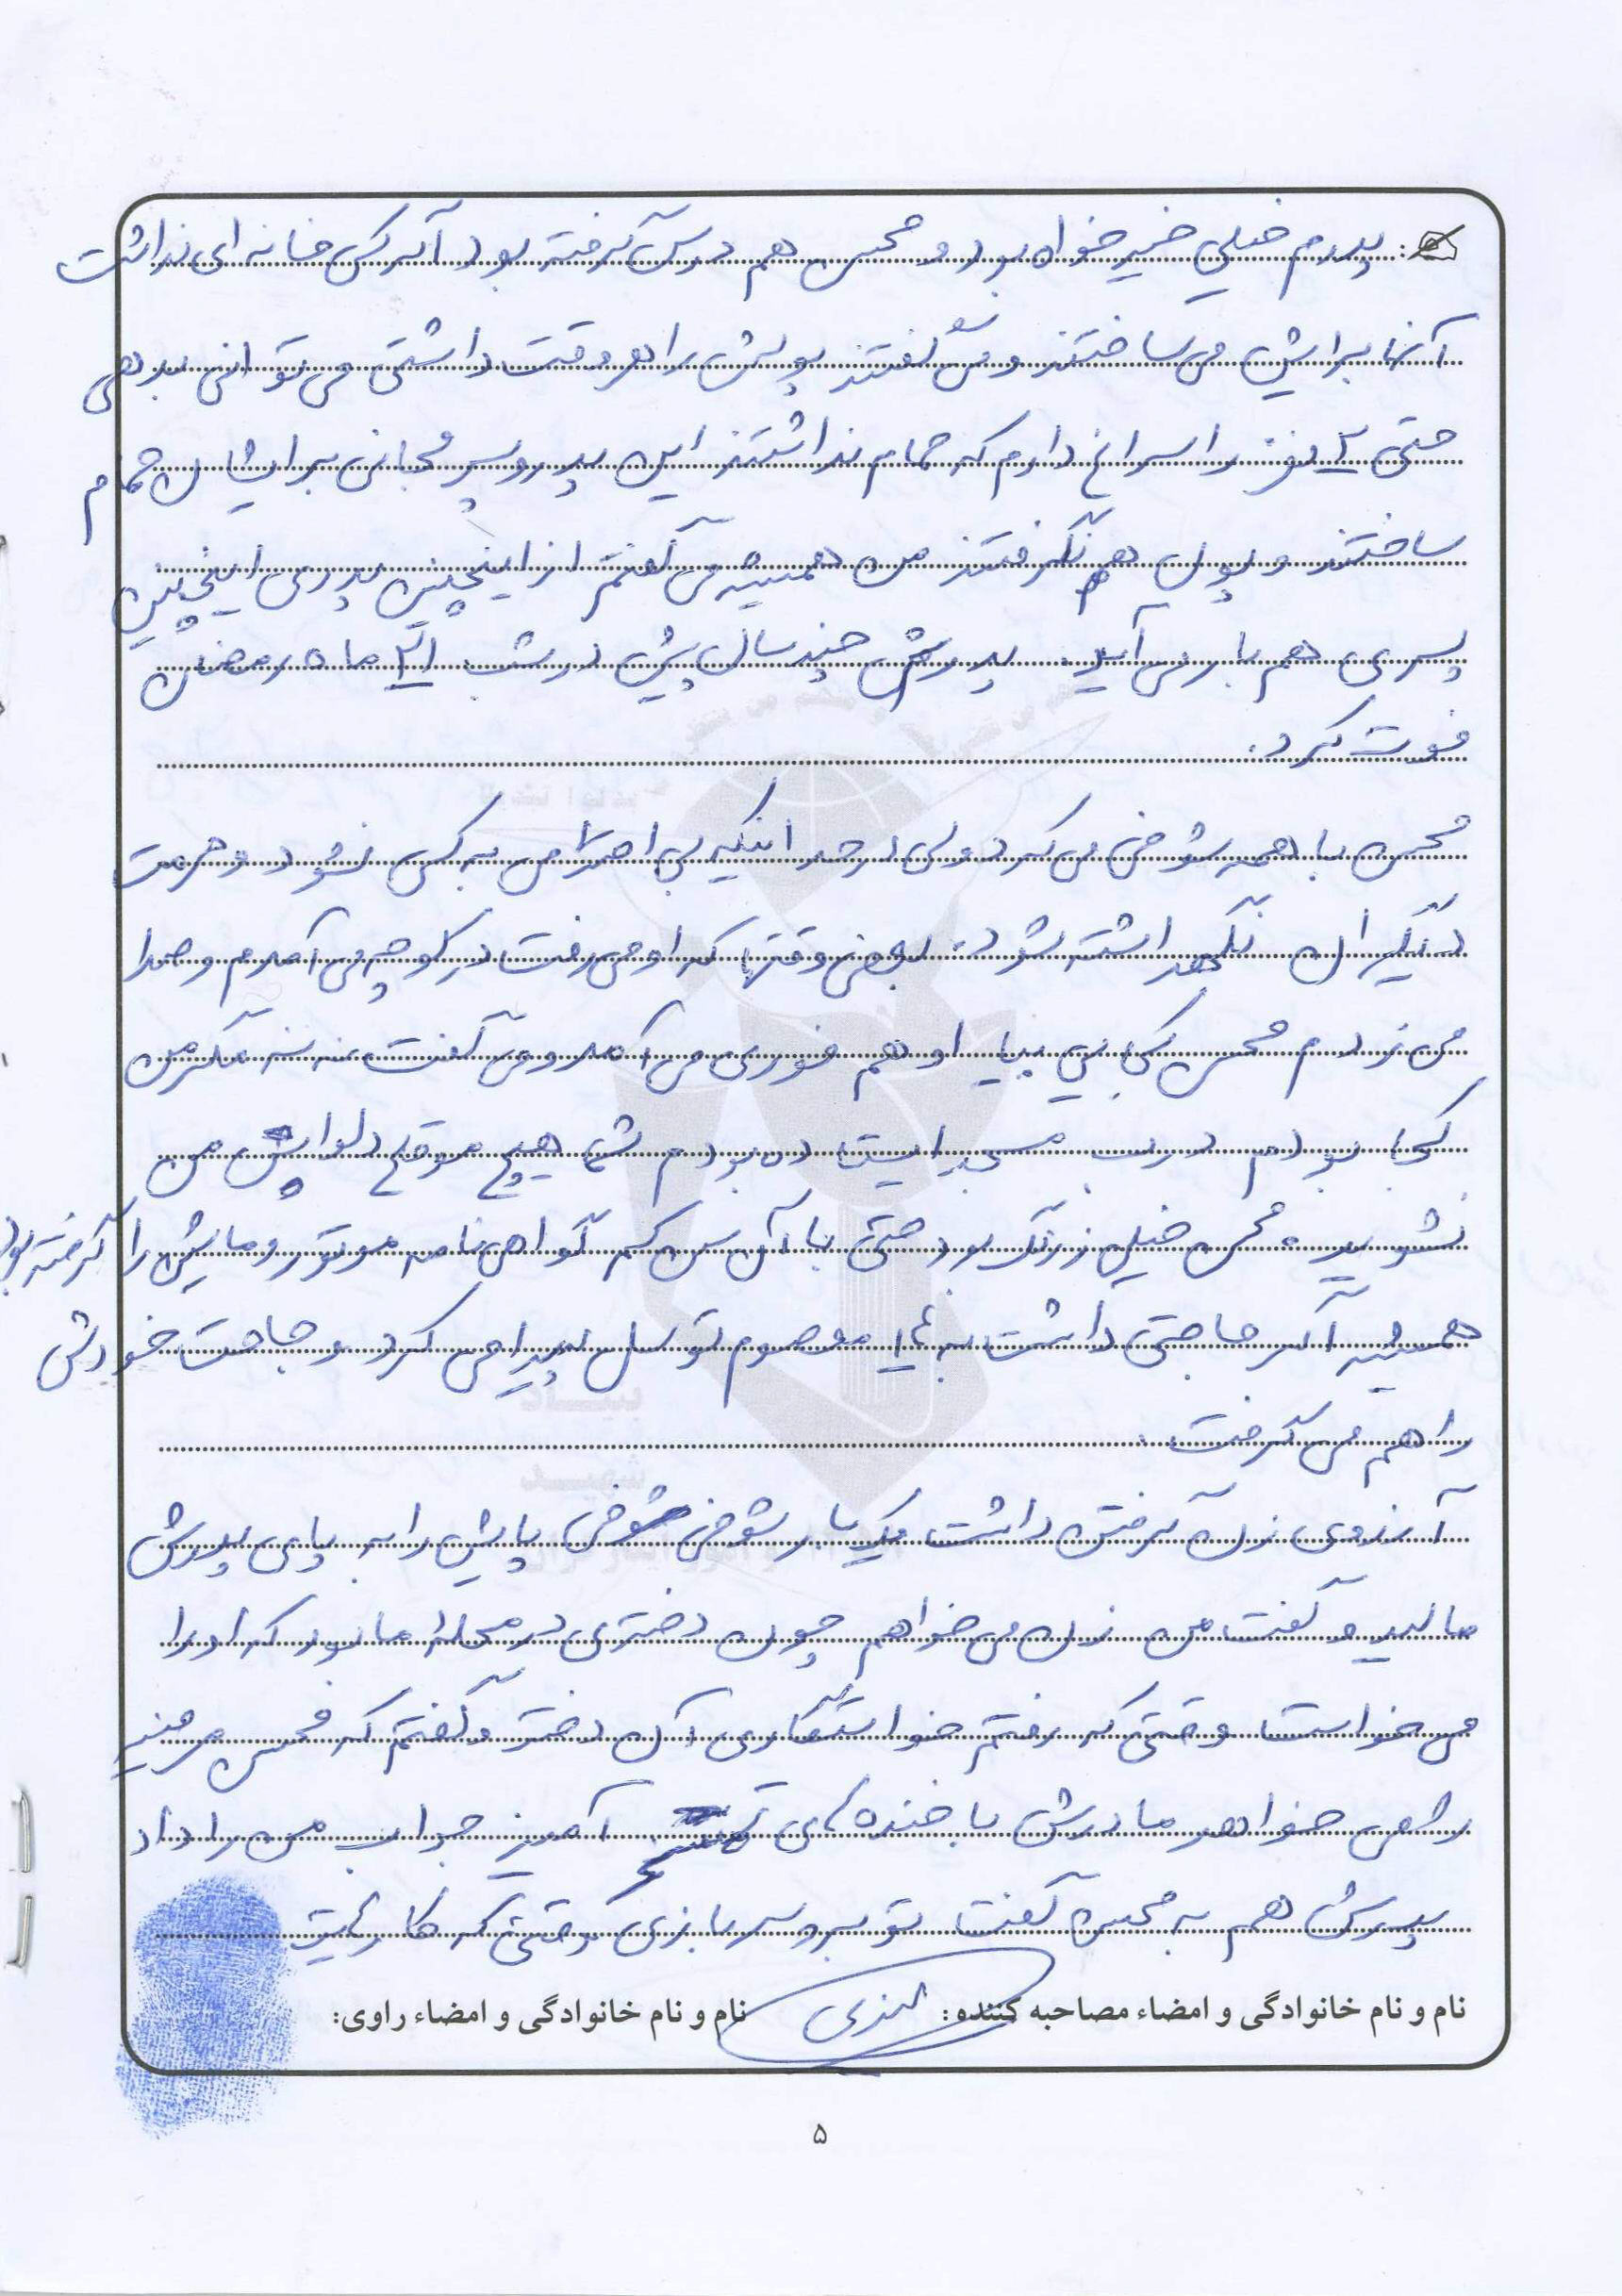 پدرم خیلی خیرخواه بود و محسن هم درس گرفته بود اگر کسی خانه ای نداشت
آنها برایش می ساختند و می گفتند پولش را هر وقت داشتی می توانی بدهی
حتی ۲ نفر را سراغ دارم که حمام نداشتند این پدر و پسر مجانی برایشان حمام
ساختند و پول هم نگرفتند من همیشه می گفتم از اینچنین پدری اینچنین
پسری هم بار می آید. پدرش چند سال پیش در شب ۲۱ ماه رمضان
فوت کرد.
محسن با همه شوخی می کرد ولی در حد اینکه بی احترامی به کسی نشود و حرمت
دیگران نگهداشته شود. بعضی وقتها که او می رفت در کوچه می آمدم و صدا
می زدم محسن کجایی بیا او هم فوری می آمد و می گفت ننه مگر من
کجا بودم درب مسجد ایستاده بودم شما هیچ موقع دلواپس من
نشوید. محسن خیلی زرنگ بود حتی با آن سن کم گواهی نامه موتور و ماشین را گرفته بود
همیشه اگر حاجتی داشت به ۱۴ معصوم توسل پیدا می کرد و حاجت خودش
را هم می گرفت.
آرزوی زن گرفتن داشت یکبار شوخی شوخی پایش را به پای پدرش
مالید و گفت من زن می خواهم چون دختری در محله ما بود که او را
می خواست وقتی که رفتم خواستگاری آن دختر و گفتم که محسن
را می خواهد مادرش با خنده ای تمسخر آمیز جواب من را داد
پدرش هم به محسن گفت تو برو سربازی وقتی که کارهایت
نام و نام خانوادگی و امضاء مصاحبه کننده: نام و نام خانوادگی و امضاء راوی:
۵